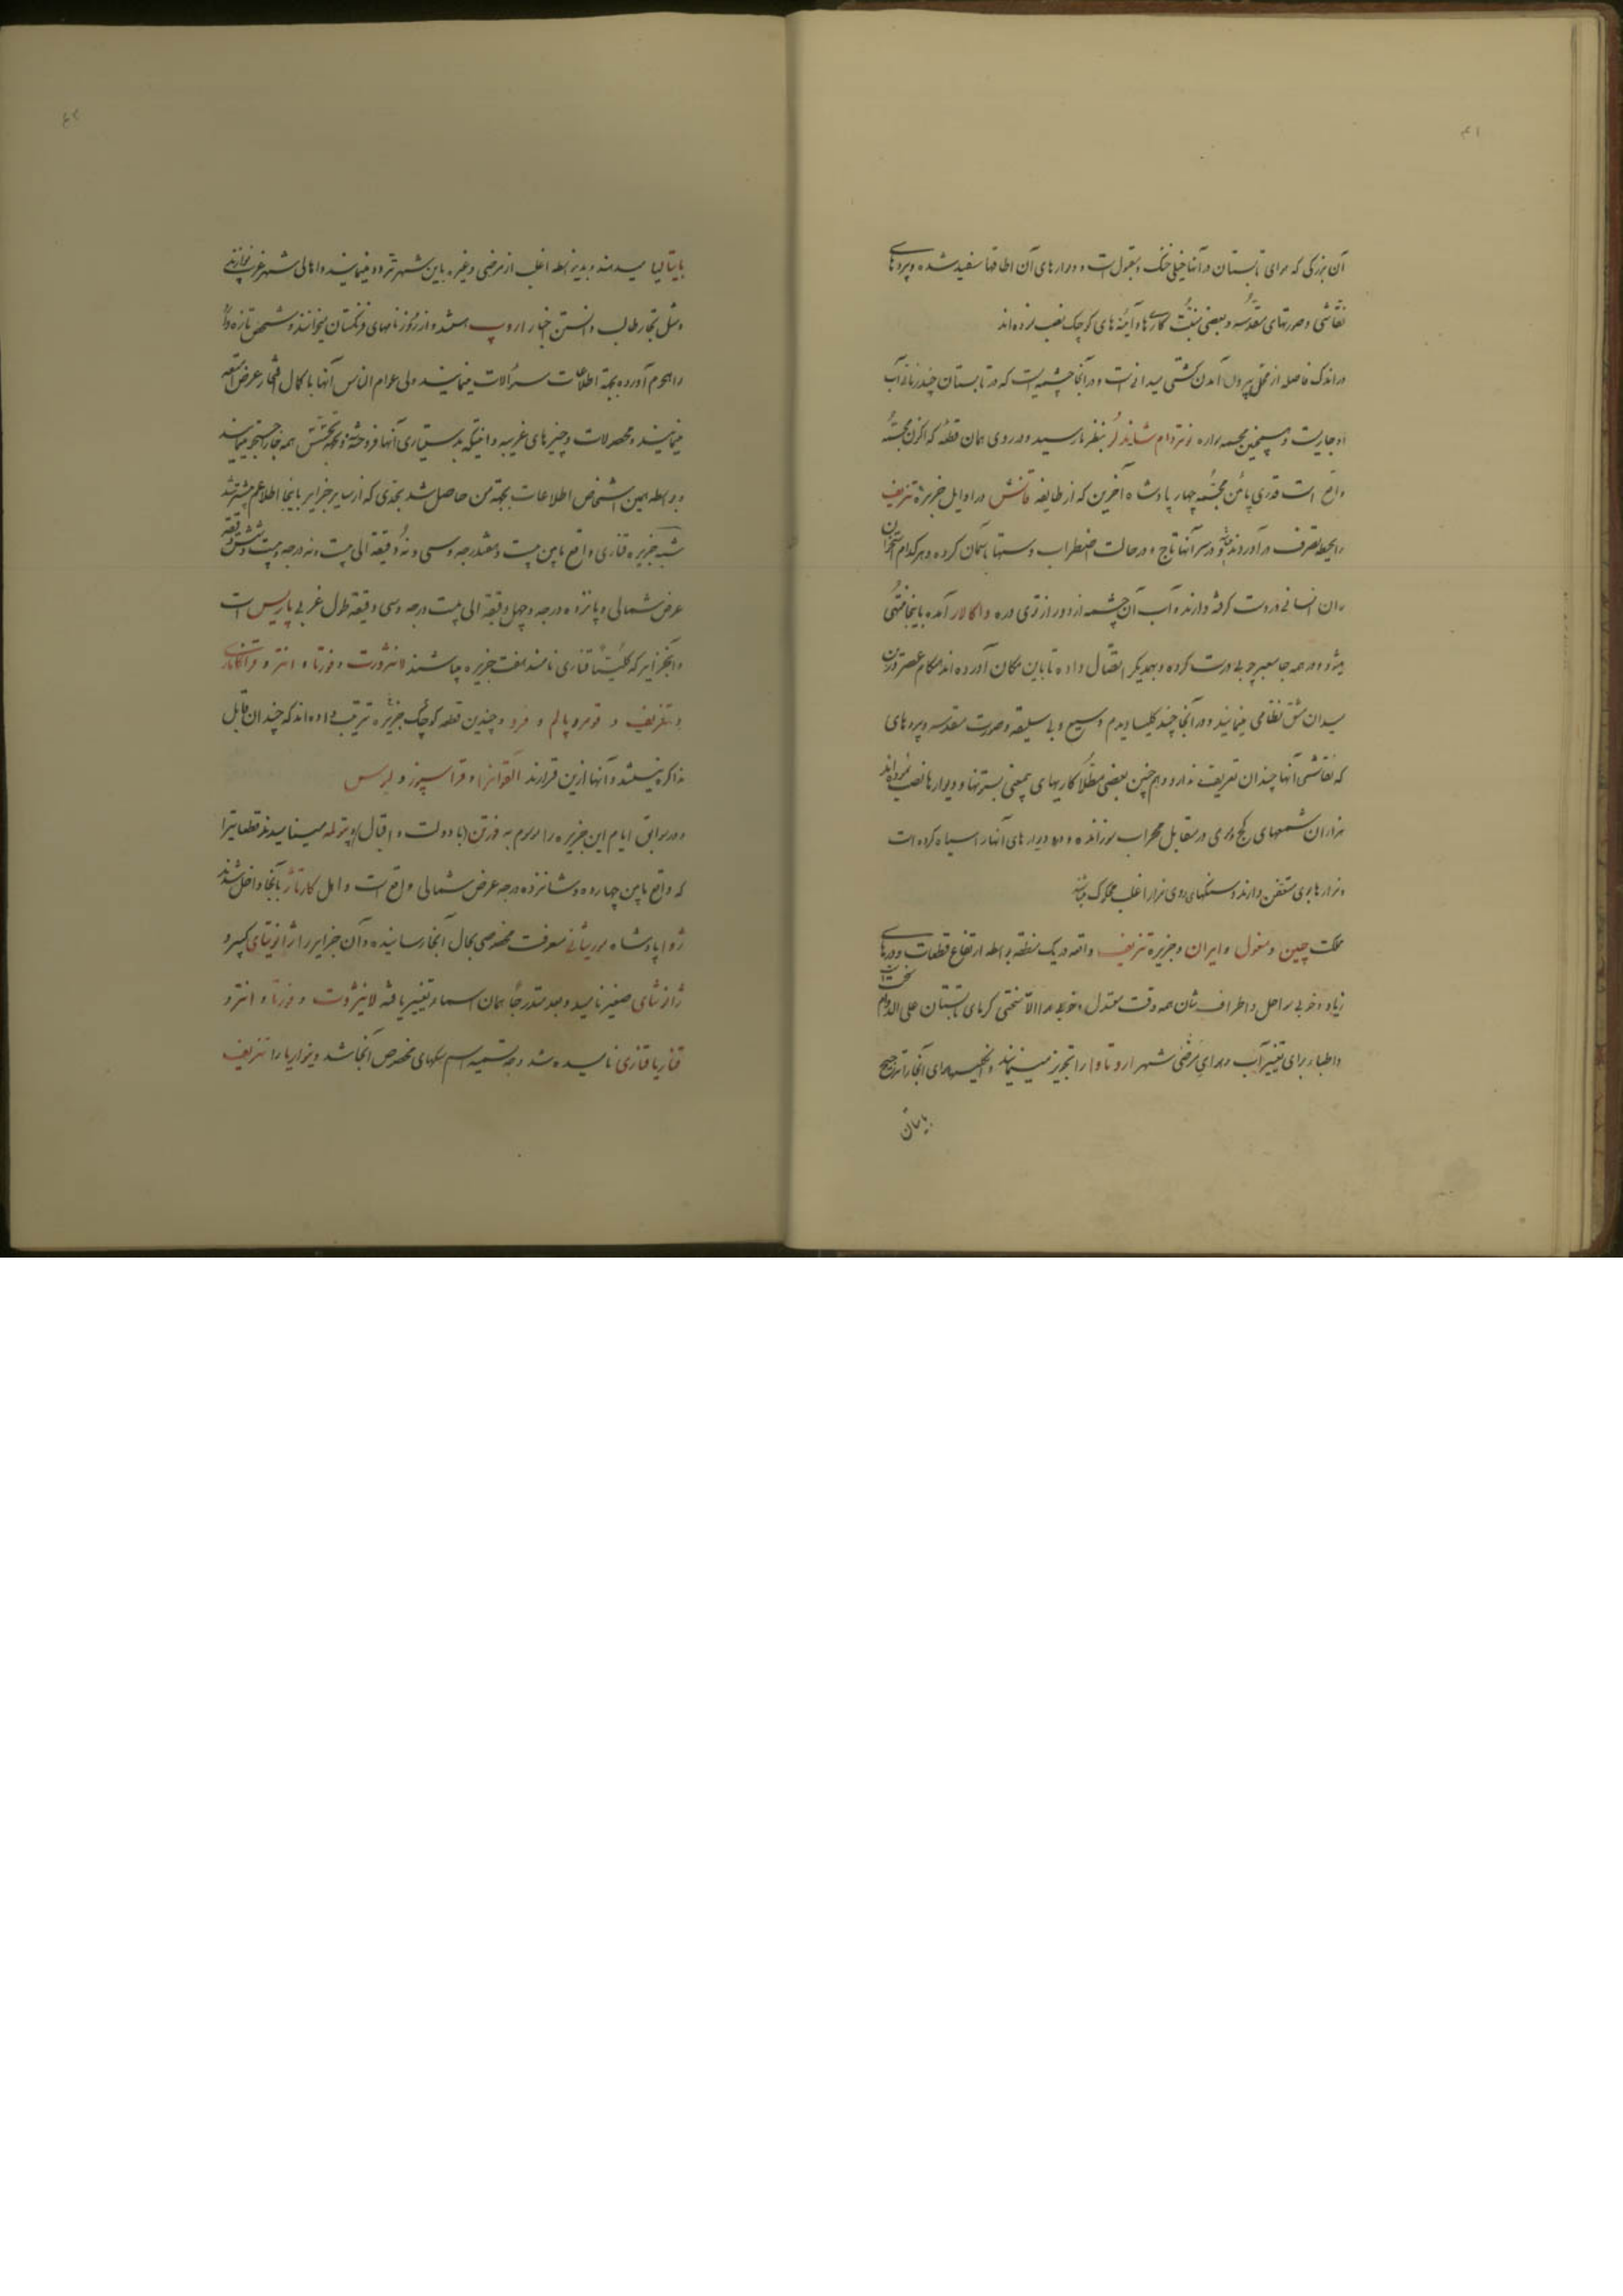 ۴۱
آن بزرگی که برای تابستان در آنها خیلی خنک و معقول است و دیوارهای آن اطاقها سفید شده و پرده‌های
نقاشی و صورتهای مقدسه و بعضی منبت کاریها و آینه‌های کوچک نصب نموده‌اند
در اندک فاصله از محل بیرون آمدن کشتی میدانی است و در آنجا چشمه‌ایست که در تابستان چند زمانه آب
او جاریست و همچنین مجسمه بواره نوتردام شاندلر بنظر ما رسید و در روی همان قطعه که اکنون مجسمه
واقع است قدری پائین مجسمه چهار پادشاه آخرین که از طایفه قانش در اوایل جزیره تنریف
را بحیطه تصرف در آوردند و در سر آنها تاج و در حالت اضطراب دستها باسمان کرده و هر کدام استخوان
ران انسانی در دست گرفته دارند و آب آن چشمه از دور از توی دره داکالار آمده باینجا منتهی
میشود و در همه جا معبر چوبی درست کرده و بهمدیگر اتصال داده تا باین مکان آورده‌اند هنگام عصر در این
میدان مشق نظامی مینمایند و در آنجا چند کلیسا دیدم وسیع و بی سلیقه و صورت مقدسه و پرده‌های
که نقاشی آنها چندان تعریف ندارد و هم چنین بعضی مطلا کاریهای بستونها و دیوارها نصب نموده‌اند
هزاران شمعهای کج در مقابل محراب سوزانده و دود دیوارهای آنها را سیاه کرده است
و مزارها بوی متعفن دارند و سنگهای روی مزار اغلب محکوک میباشد
مملکت چین و مغول و ایران و جزیره تنریف واقعه در یک منطقه بواسطه ارتفاع قطعات و دره‌های
زیاد و خوبی سواحل و اطراف شان همه وقت معتدل و خوب هوا الا سختی گرمای تابستان علی الدوام نخواهد داشت
و اطباء برای تغییر آب و هوای مرضی شهر اروتاوا را تجویز مینمایند و انگلیسها هوای آنجا را ترجیح
بایتالیا
۴۲
بایتالیا میدهند و بدین واسطه اغلب از مرضی و غیره باین شهر تردد مینمایند و اهالی شهر غریب نوازند
و مثل تجار طالب دانستن اخبار اروپ هستند و از روزنامهای فرنگستان میخوانند و شخص تازه وارد
را هجوم آورده بجهة اطلاعات سؤالات مینمایند ولی عوام الناس آنها با کمال افتخار عرض امتعه
مینمایند و محصولات و چیزهای غریبه و انتیکه بدستیاری آنها فروخته و بجهة تحقیقش همه جا را جستجو مینمایند
و بواسطه همین اشخاص اطلاعات بجهة من حاصل شد بحدی که از سایر جزایر باینجا اطلاعم بیشتر شد
شبه جزیره قناری واقع مابین بیست و هفت درجه و سی و نه دقیقه الی بیست و نه درجه و بیست و شش دقیقه
عرض شمالی و پانزده درجه و چهل دقیقه الی بیست درجه و سی دقیقه طول غربی پاریس است
و این جزایر که کلیتا قناری نامند هفت جزیره میباشند لانزورت و فورتا و انترو و قراکاناری
و تنریف و قومرو پالم و فرو و چندین قطعه کوچک جزیره ترتیب داده‌اند که چندان قابل
مذاکره نیستند و آنها ازین قرارند القوانزا و قراسیوز و لوبس
و در سوابق ایام این جزیره را موسوم به فورتن (با دولت و اقبال) و بتوله مینامیدند قطعاتیرا
که واقع مابین چهارده و شانزده درجه عرض شمالی واقع است و اهل کارتاژ بآنجا داخل شدند
ژوا پادشاه موریتانی معرفت مخصوصی بحال آنجا رسانیده و آن جزایر را ژانونیای کبیر و
ژانونیای صغیر نامید و بعد متدرجا همان اسمها و تغییر یافته لانزورت و فورتا و انترو
قناریا قناری نامیده شد وجه تسمیه اسم سگهای مخصوص آنجا شد و نیواریا را تنریف